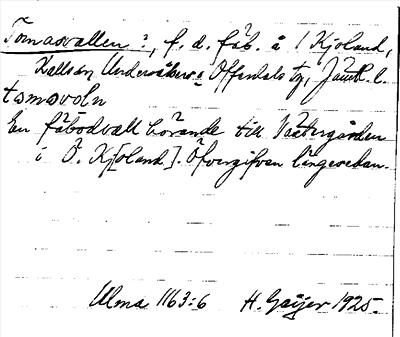 Tomasvallen ?, f. d. fäb. å 1 Kjoland,
Kallsen Undersåkers o Offerdals tg, Jämtl. l.
tɷmsvoln
En fäbodvall hörande till Västergården
i Ö. Kj[oland]. Öfvergifven längesedan.
Ulma 1163:6 H. Geijer 1925.